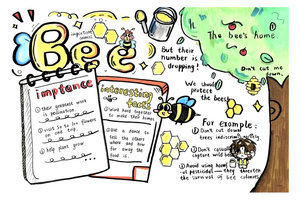 Bee
important insect
But their number is dropping!
The bee's home.
Don't cut me down.
We should protect the bees.
imptance
① their greatest work is pollination.
② visit 50 to 100 flowers on one trip.
③ help plant grow
interesting facts
① Work hard together to make their honey.
② Use a dance to tell the others where and how far away the food is.
For example:
① Don't cut down trees indiscriminately.
② Don't casually capture wild bees.
③ Avoid using harmful pesticides — they threaten the survival of bee colonies.